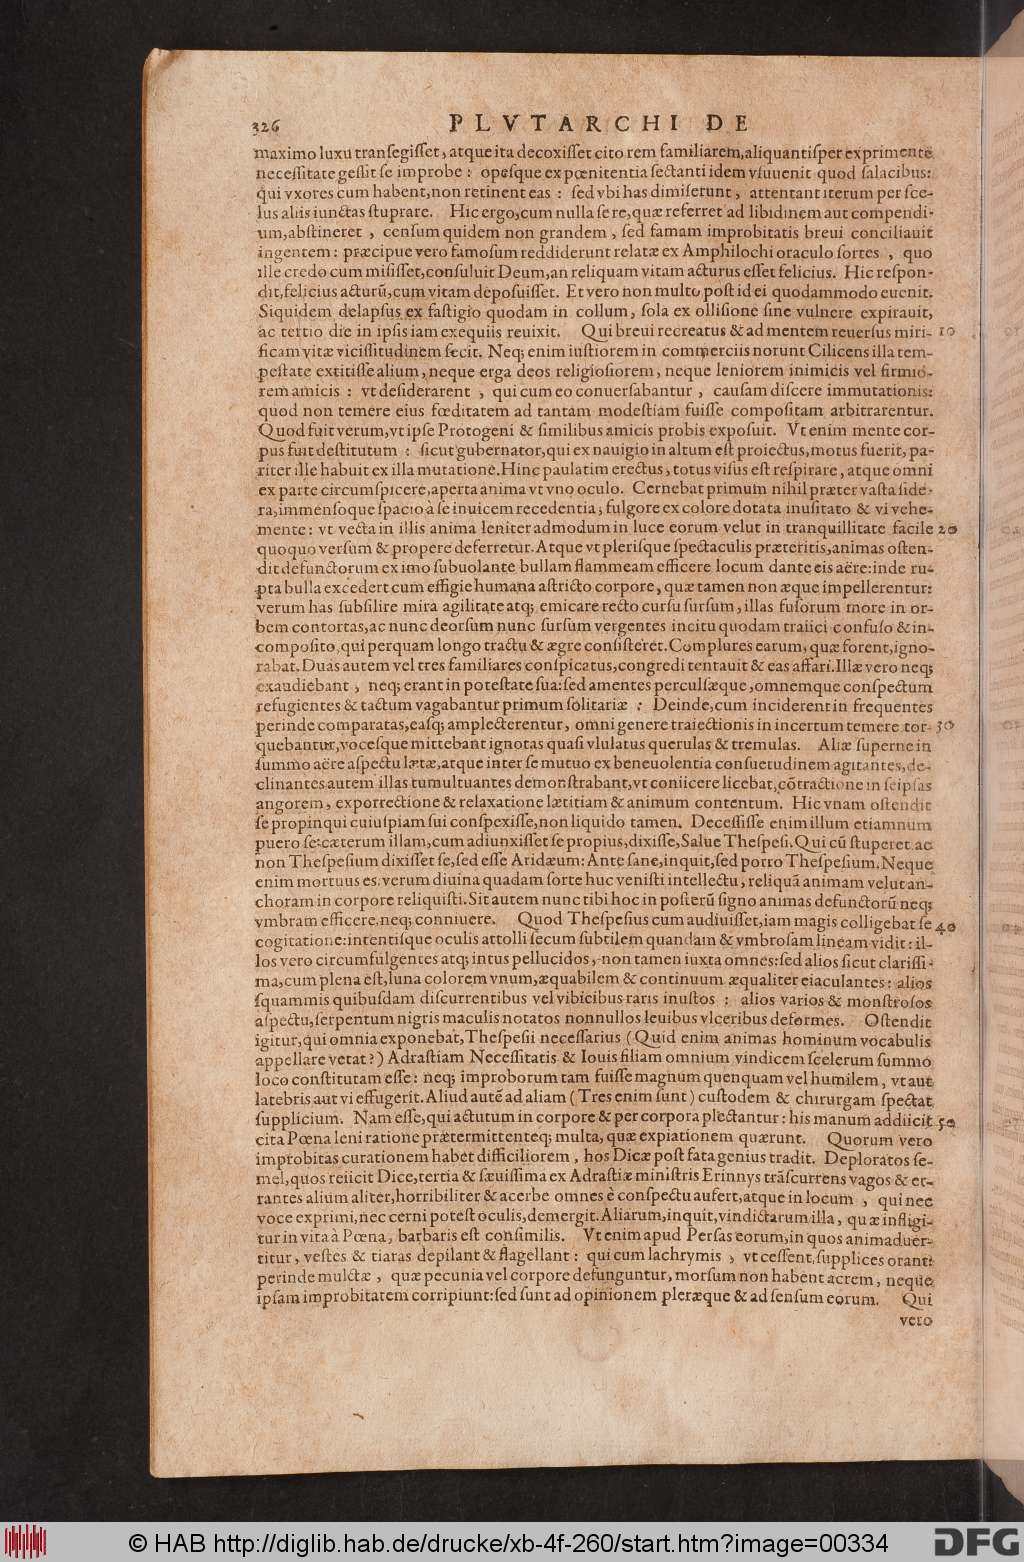 326 PLVTARCHI DE
maximo luxu tranſegiſſet, atque ita decoxiſſet cito rem familiarem, aliquantiſper exprimente
neceſſitate geſſit ſe improbe: opeſque ex pœnitentia ſectanti idem vſuuenit quod ſalacibus:
qui vxores cum habent, non retinent eas: ſed vbi has dimiſerunt, attentant iterum per ſce-
lus aliis iunctas ſtuprare. Hic ergo, cum nulla ſe re, quæ referret ad libidinem aut compendi-
um, abſtineret, cenſum quidem non grandem, ſed famam improbitatis breui conciliauit
ingentem: præcipue vero famoſum reddiderunt relatæ ex Amphilochi oraculo ſortes, quo
ille credo cum miſiſſet, conſuluit Deum, an reliquam vitam acturus eſſet felicius. Hic reſpon-
dit, felicius acturũ, cum vitam depoſuiſſet. Et vero non multo poſt id ei quodammodo euenit.
Siquidem delapſus ex faſtigio quodam in collum, ſola ex olliſione ſine vulnere expirauit,
ac tertio die in ipſis iam exequiis reuixit. Qui breui recreatus & ad mentem reuerſus miri- 10
ficam vitæ viciſſitudinem fecit. Neq; enim iuſtiorem in commerciis norunt Cilicens illa tem-
peſtate extitiſſe alium, neque erga deos religioſiorem, neque leniorem inimicis vel firmio-
rem amicis: vt deſiderarent, qui cum eo conuerſabantur, cauſam diſcere immutationis:
quod non temere eius fœditatem ad tantam modeſtiam fuiſſe compoſitam arbitrarentur.
Quod fuit verum, vt ipſe Protogeni & ſimilibus amicis probis expoſuit. Vt enim mente cor-
pus fuit deſtitutum: ſicut gubernator, qui ex nauigio in altum eſt proiectus, motus fuerit, pa-
riter ille habuit ex illa mutatione. Hinc paulatim erectus, totus viſus eſt reſpirare, atque omni
ex parte circumſpicere, aperta anima vt vno oculo. Cernebat primum nihil præter vaſta ſide-
ra, immenſoque ſpacio à ſe inuicem recedentia, fulgore ex colore dotata inuſitato & vi vehe-
mente: vt vecta in illis anima leniter admodum in luce eorum velut in tranquillitate facile 20
quoquo verſum & propere deferretur. Atque vt pleriſque ſpectaculis præteritis, animas oſten-
dit defunctorum ex imo ſubuolante bullam flammeam efficere locum dante eis aëre: inde ru-
pta bulla excedert cum effigie humana aſtricto corpore, quæ tamen non æque impellerentur:
verum has ſubſilire mira agilitate atq; emicare recto curſu ſurſum, illas fuſorum more in or-
bem contortas, ac nunc deorſum nunc ſurſum vergentes incitu quodam traiici confuſo & in-
compoſito, qui perquam longo tractu & ægre conſiſteret. Complures earum, quæ forent, igno-
rabat. Duas autem vel tres familiares conſpicatus, congredi tentauit & eas affari. Illæ vero neq;
exaudiebant, neq; erant in poteſtate ſua: ſed amentes perculſæque, omnemque conſpectum
refugientes & tactum vagabantur primum ſolitariæ: Deinde, cum inciderent in frequentes
perinde comparatas, eaſq; amplecterentur, omni genere traiectionis in incertum temere tor- 30
quebantur, voceſque mittebant ignotas quaſi vlulatus querulas & tremulas. Aliæ ſuperne in
ſummo aëre aſpectu lætæ, atque inter ſe mutuo ex beneuolentia conſuetudinem agitantes, de-
clinantes autem illas tumultuantes demonſtrabant, vt coniicere licebat, cõtractione in ſeipſas
angorem, exporrectione & relaxatione lætitiam & animum contentum. Hic vnam oſtendit
ſe propinqui cuiuſpiam ſui conſpexiſſe, non liquido tamen. Deceſſiſſe enim illum etiamnum
puero ſe: cæterum illam, cum adiunxiſſet ſe propius, dixiſſe, Salue Theſpeſi. Qui cũ ſtuperet ac
non Theſpeſium dixiſſet ſe, ſed eſſe Aridæum: Ante ſane, inquit, ſed porro Theſpeſium. Neque
enim mortuus es. verum diuina quadam ſorte huc veniſti intellectu, reliquã animam velut an-
choram in corpore reliquiſti. Sit autem nunc tibi hoc in poſterũ ſigno animas defunctorũ neq;
vmbram efficere, neq; conniuere. Quod Theſpeſius cum audiuiſſet, iam magis colligebat ſe 40
cogitatione: intentiſque oculis attolli ſecum ſubtilem quandam & vmbroſam lineam vidit: il-
los vero circumfulgentes atq; intus pellucidos, non tamen iuxta omnes: ſed alios ſicut clariſſi-
ma, cum plena eſt, luna colorem vnum, æquabilem & continuum æqualiter eiaculantes: alios
ſquammis quibuſdam diſcurrentibus vel vibicibus raris inuſtos: alios varios & monſtroſos
aſpectu, ſerpentum nigris maculis notatos nonnullos leuibus vlceribus deformes. Oſtendit
igitur, qui omnia exponebat, Theſpeſii neceſſarius (Quid enim animas hominum vocabulis
appellare vetat?) Adraſtiam Neceſſitatis & Iouis filiam omnium vindicem ſcelerum ſummo
loco conſtitutam eſſe: neq; improborum tam fuiſſe magnum quenquam vel humilem, vt aut
latebris aut vi effugerit. Aliud autẽ ad aliam (Tres enim ſunt) cuſtodem & chirurgam ſpectat
ſupplicium. Nam eſſe, qui actutum in corpore & per corpora plectantur: his manum addiicit 50
cita Pœna leni ratione prætermittenteq; multa, quæ expiationem quærunt. Quorum vero
improbitas curationem habet difficiliorem, hos Dicæ poſt fata genius tradit. Deploratos ſe-
mel, quos reiicit Dice, tertia & ſæuiſſima ex Adraſtiæ miniſtris Erinnys trãſcurrens vagos & er-
rantes alium aliter, horribiliter & acerbe omnes è conſpectu aufert, atque in locum, qui nec
voce exprimi, nec cerni poteſt oculis, demergit. Aliarum, inquit, vindictarum illa, quæ infligi-
tur in vita à Pœna, barbaris eſt conſimilis. Vt enim apud Perſas eorum, in quos animaduer-
titur, veſtes & tiaras depilant & flagellant: qui cum lachrymis, vt ceſſent, ſupplices orant:
perinde mulctæ, quæ pecunia vel corpore defunguntur, morſum non habent acrem, neque
ipſam improbitatem corripiunt: ſed ſunt ad opinionem pleræque & ad ſenſum eorum. Qui
vero
© HAB http://diglib.hab.de/drucke/xb-4f-260/start.htm?image=00334
DFG